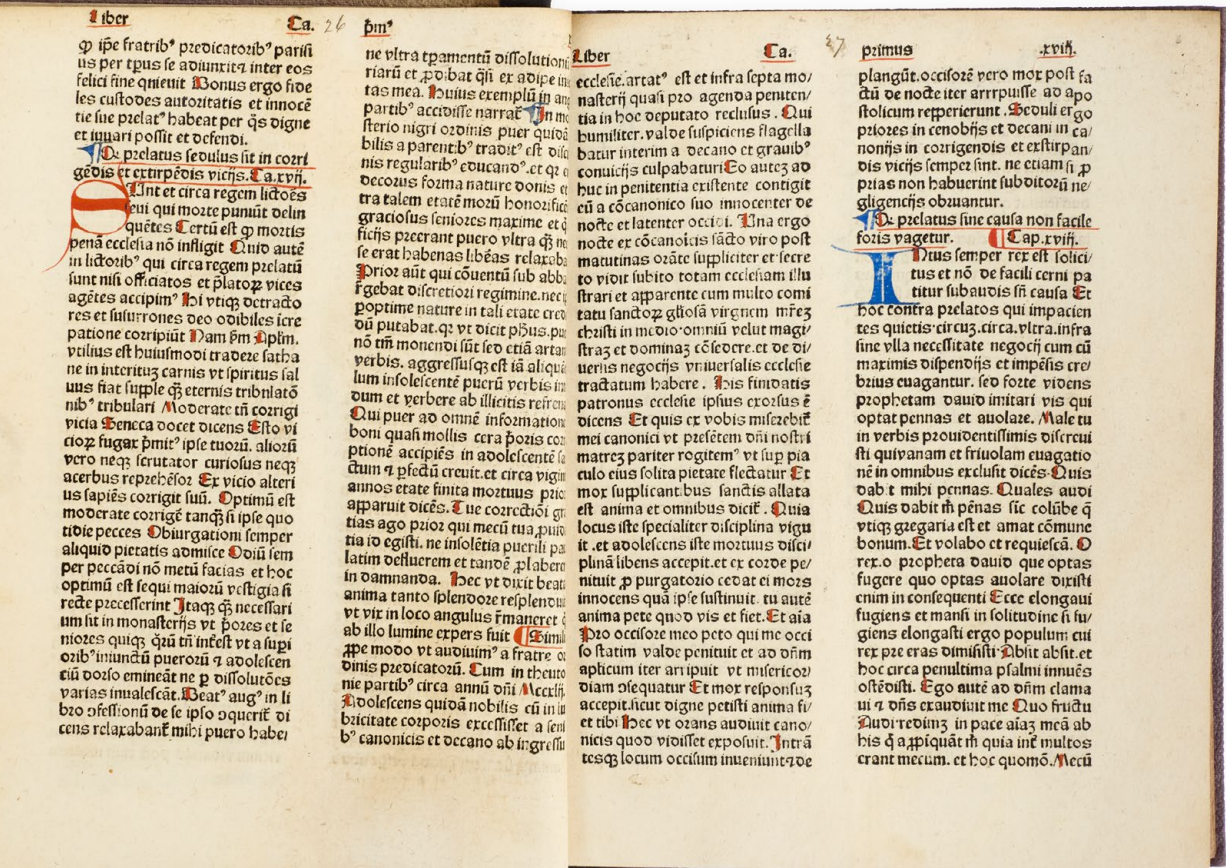 Liber
Ca. 26
pm⁹
ꝙ ip̄e fratrib⁹ predicatorib⁹ parisi
us per tp̄us se adiunxit ⁊ inter eos
felici fine quieuit Bonus ergo fide
les custodes autoritatis et innocē
tie sue prelat⁹ habeat per q̄s digne
et iuuari possit et defendi.
¶ De prelatus sedulus sit in corri
gēdis et extirpēdis vicijs. Ca.xvij.
SInt et circa regem lictoēs
seui qui morte puniūt delin
quētes Certū est ꝙ mortis
penā ecclesia nō infligit Quid autē
in lictorib⁹ qui circa regem prelatū
sunt nisi officiatos et platoꝝ vices
agētes accipim⁹ Hi vtiqꝫ detracto
res et susurrones deo odibiles īcre
patione corripiūt Nam ẜm Apl̄m.
vtilius est huiusmodi tradere satha
ne in interituꝫ carnis vt spiritus sal
uus fiat supple qꝫ eternis tribulatō
nib⁹ tribulari Moderate tn̄ corrigi
vicia Seneca docet dicens Esto vi
cioꝝ fugax p̄mit⁹ ipse tuorū. aliorū
vero neqꝫ scrutator curiosus neqꝫ
acerbus reprehēsor Ex vicio alteri
us sapiēs corrigit suū. Optimū est
moderate corrigē tanqꝫ si ipse quo
tidie pecces Obiurgationi semper
aliquid pietatis admisce Odiū sem
per peccādi nō metū facias et hoc
optimū est sequi maiorū vestigia si
recte precesserint Itaqꝫ qꝫ necessari
um sit in monasterijs vt p̄ores et se
niores quiqꝫ q̄rū tn̄ int̄est vt a supi
orib⁹ iniunctū puerorū ⁊ adolescen
tiū dorso emineāt ne ꝑ dissolutōes
varias inualescāt. Beat⁹ aug⁹ in li
bro ꝯfessionū de se ipso ꝯquerit̄ di
cens relaxabant̄ mihi puero habe
ne vltra tꝑamentū dissolutioni
riarū et ꝓdibat q̄si ex adipe in
tas mea. Huius exemplū in
partib⁹ accidisse narrat ¶ In mo
sterio nigri ordinis puer quidā
bilis a parentib⁹ tradit⁹ est
nis regularib⁹ educand⁹.et
decorus forma nature donis et
tra talem etatē morū honorifice
graciosus seniores maxime et
ficijs preerant puero vltra qꝫ
se erat habenas libēas relaxaba
Prior aūt qui cōuentū sub abba
r̄gebat discretiori regimine.nec
ꝑoptime nature in tali etate cred
dū putabat.qꝛ vt dicit ph̄us.
nō tm̄ monendi sūt sed etiā artan
verbis. aggressusqꝫ est iā aliquā
lum insolescentē puerū verbis in
dum et verbere ab illicitis
Qui puer ad omnē information
boni quasi mollis cera p̄oris
ptionē accipiēs in adolescentē
ctum ⁊ ꝑfectū creuit.et circa vigin
annos etate finita mortuus prio
apparuit dicēs. Tue correctiōi
tias ago prior qui mecū tua
tia id egisti. ne insolētia puerili
latim defluerem et tandē ꝓlabere
in damnanda. Hec vt dixit beat
anima tanto splendore resplendui
vt vix in loco angulus r̄maneret
ab illo lumine expers fuit ¶ Simil
ꝓpe modo vt audiuim⁹ a fratre
dinis predicatorū. Cum in theuto
nie partib⁹ circa annū dn̄i Mccxlij.
Adolescens quidā nobilis cū in
bricitate corporis excessisset a seni
b⁹ canonicis et decano ab ingressu
Liber
Ca.
27
primus
.xviij.
ecclesie.artat⁹ est et infra septa mo/
nasterij quasi pro agenda peniten/
tia in hoc deputato reclusus. Qui
humiliter. valde suspiciens flagella
batur interim a decano et grauib⁹
conuicijs culpabatur Eo autē ad
huc in penitentia existente contigit
eū a cōcanonico suo innocenter de
nocte et latenter occidi. Una ergo
nocte ex cōcanoicis sācto viro post
matutinas orāte suppliciter et secre
to vidit subito totam ecclesiam illu
strari et apparente cum multo comi
tatu sanctoꝝ gl̄osā virginem mr̄eꝫ
christi in medio omniū velut magi/
straꝫ et dominaꝫ cōsedere.et de di/
uersis negocijs vniuersalis ecclesie
tractatum habere. His finidatis
patronus ecclesie ipsius exorsus ē
dicens Et quis ex vobis miserebit̄
mei canonici vt presētem dn̄i nostri
matreꝫ pariter rogitem⁹ vt sup pia
culo eius solita pietate flectatur Et
mox supplicantibus sanctis allata
est anima et omnibus dicit̄. Quia
locus iste specialiter disciplina vigu
it.et adolescens iste mortuus disci/
plinā libens accepit.et ex corde pe/
nituit ꝓ purgatorio cedat ei mors
innocens quā ipse sustinuit. tu autē
anima pete quod vis et fiet. Et aīa
Pro occisore meo peto qui me occi
so statim valde penituit et ad dn̄m
aplicum iter arripuit vt misericor/
diam ꝯsequatur Et mox responsuꝫ
accepit.sicut digne petisti anima fi/
et tibi Hec vt orans audiuit cano/
nicis quod vidisset exposuit. Intrā
tesqꝫ locum occisum inueniunt ⁊ de
plangūt.occisorē vero mox post fa
ctū de nocte iter arrrpuisse ad apo
stolicum repperierunt. Seduli ergo
priores in cenobijs et decani in ca/
nonijs in corrigendis et exstirpan/
dis vicijs semper sint. ne etiam si ꝓ
prias non habuerint subditorū ne/
gligencijs obruantur.
¶ De prelatus sine causa non facile
foris vagetur. ¶ Cap.xviij.
INtus semper rex est solici/
tus et nō de facili cerni pa
titur subaudis sn̄ causa Et
hoc contra prelatos qui impacien
tes quietis circuꝫ.circa.vltra.infra
sine vlla necessitate negocij cum cū
maximis dispendijs et impēsis cre/
brius euagantur. sed forte videns
prophetam dauid imitari vis qui
optat pennas et auolare. Male tu
in verbis prouidentissimis discrcui
sti quiuanam et friuolam euagatio
nē in omnibus exclusit dicēs Quis
dabit mihi pennas. Quales audi
Quis dabit m̄ pēnas sic̄ colūbe ꝗ
vtiqꝫ gregaria est et amat cōmune
bonum. Et volabo et requiescā. O
rex.o propheta dauid que optas
fugere quo optas auolare dixisti
enim in consequenti Ecce elongaui
fugiens et mansi in solitudine si fu/
giens elongasti ergo populum cui
rex pre eras dimisisti Absit absit.et
hoc circa penultima psalmi innuēs
ostēdisti. Ego autē ad dn̄m clama
ui ⁊ dn̄s exaudiuit me Quo fructu
Audi redimꝫ in pace aīaꝫ meā ab
his q̄ aꝓpīquāt m̄ quia int̄ multos
erant mecum. et hoc quomō. Mecū